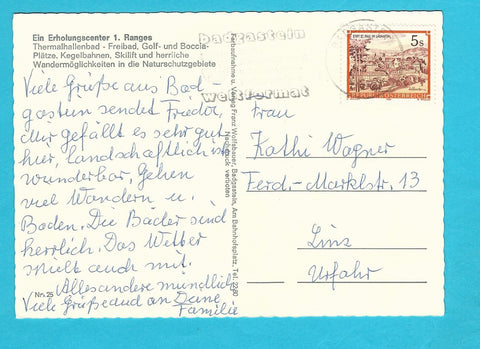 Ein Erholungscenter 1. Ranges
Thermalhallenbad - Freibad, Golf- und Boccia-
Plätze, Kegelbahnen, Skilift und herrliche
Wandermöglichkeiten in die Naturschutzgebiete
Viele Grüße aus Bad-
gastein sendet Friedor,
Mir gefällt es sehr gut
hier, landschaftlich ist
wunderbar, Gehen
viel Wandern u.
Baden. Die Bäder sind
herrlich. Das Wetter
spielt auch mit.
Alles andere mündlich
Viele Grüße auch an Deine
Familie
Nr. 25
Farbaufnahme u. Verlag Franz Wolfsbauer, Badgastein, Am Bahnhofsplatz, Tel. 2280
Nachdruck verboten
badgastein
weltformat
5s
REPUBLIK ÖSTERREICH
Frau
Kathi Wagner
Ferd.-Marklstr. 13
Linz
Urfahr